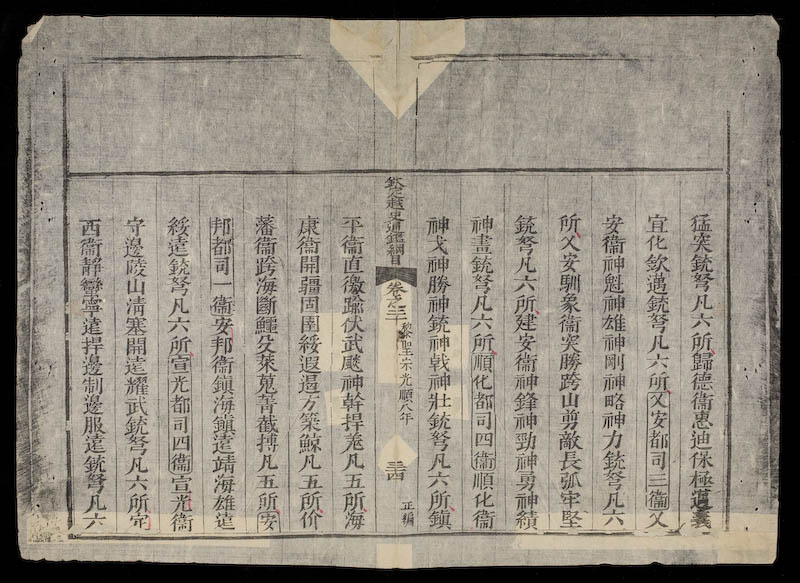 猛突銃弩凡六所歸德衞惠迪保極遵義
宜化欽邁銃弩凡六所乂安都司三衞乂
安衞神魁神雄神剛神略神力銃弩凡六
所乂安馴象衞突勝跨山剪敵長弧牢堅
銃弩凡六所建安衞神鋒神勁神勇神績
神畫銃弩凡六所順化都司四衞順化衞
神戈神勝神銃神戟神壯銃弩凡六所鎮
欽定越史通鑑綱目 卷之 黎聖宗光順八年 三四 正編
平衞直徼踰伏武飈神幹捍羗凡五所海
康衞開疆固圉綏遐遏方築鯨凡五所价
藩衞跨海斷鱷殳萊蒐菁截搏凡五所安
邦都司一衞安邦衞鎮海鎮遠靖海雄遠
綏遠銃弩凡六所宣光都司四衞宣光衞
守邊陵山淸塞開遠耀武銃弩凡六所
西衞靜蠻寧遠捍邊制邊服遠銃弩凡六